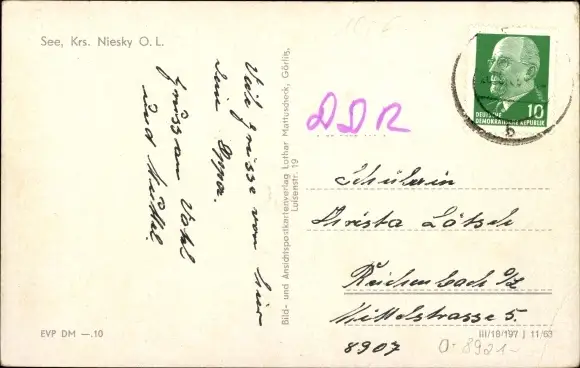 See, Krs. Niesky O. L.
Viele Grüsse von hier
dein Oppa.
Gruss an Vatel
und Muttel
Bild- und Ansichtspostkartenverlag Lothar Mattuscheck, Görlitz,
Luisenstr. 19
DDR
10
DEUTSCHE
DEMOKRATISCHE REPUBLIK
b
Schülerin
Christa Lötsch
Reichenbach O/L
Mittelstrasse 5.
8907
EVP DM —.10
III/18/197 J 11/63
O-8921-